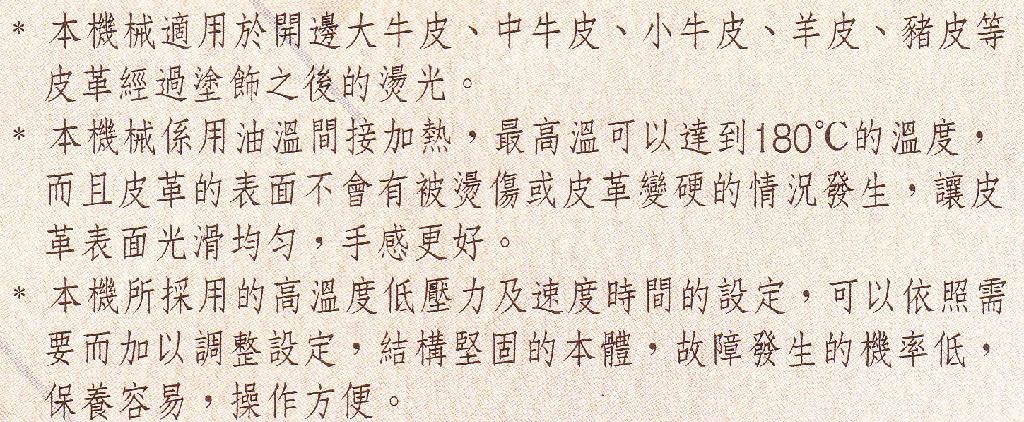 * 本機械適用於開邊大牛皮、中牛皮、小牛皮、羊皮、豬皮等
皮革經過塗飾之後的燙光。
* 本機械係用油溫間接加熱，最高溫可以達到180℃的溫度，
而且皮革的表面不會有被燙傷或皮革變硬的情況發生，讓皮
革表面光滑均勻，手感更好。
* 本機所採用的高溫度低壓力及速度時間的設定，可以依照需
要而加以調整設定，結構堅固的本體，故障發生的機率低，
保養容易，操作方便。